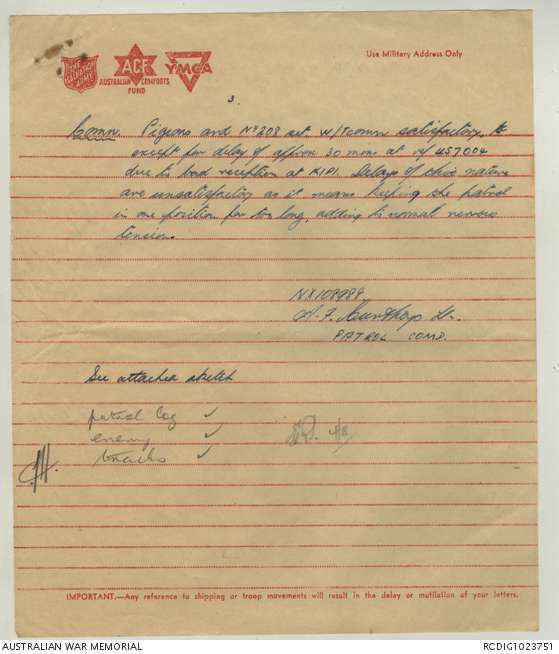 THE SALVATION ARMY
ACF
AUSTRALIAN COMFORTS FUND
YMCA
Use Military Address Only
3.
Comn. Pigeons and No 208 set W/T comn satisfactory,
except for delay of approx 30 mins at ref 457004
due to bad reception at KIPI. Delays of this nature
are unsatisfactory as it means keeping the patrol
in one position for too long, adding to normal nervous
tension.
NX108988
Lt.
PATROL COMD.
See attached sketch
patrol log ✓
enemy ✓
tracks ✓
IMPORTANT.—Any reference to shipping or troop movements will result in the delay or mutilation of your letters.
AUSTRALIAN WAR MEMORIAL
RCDIG1023751